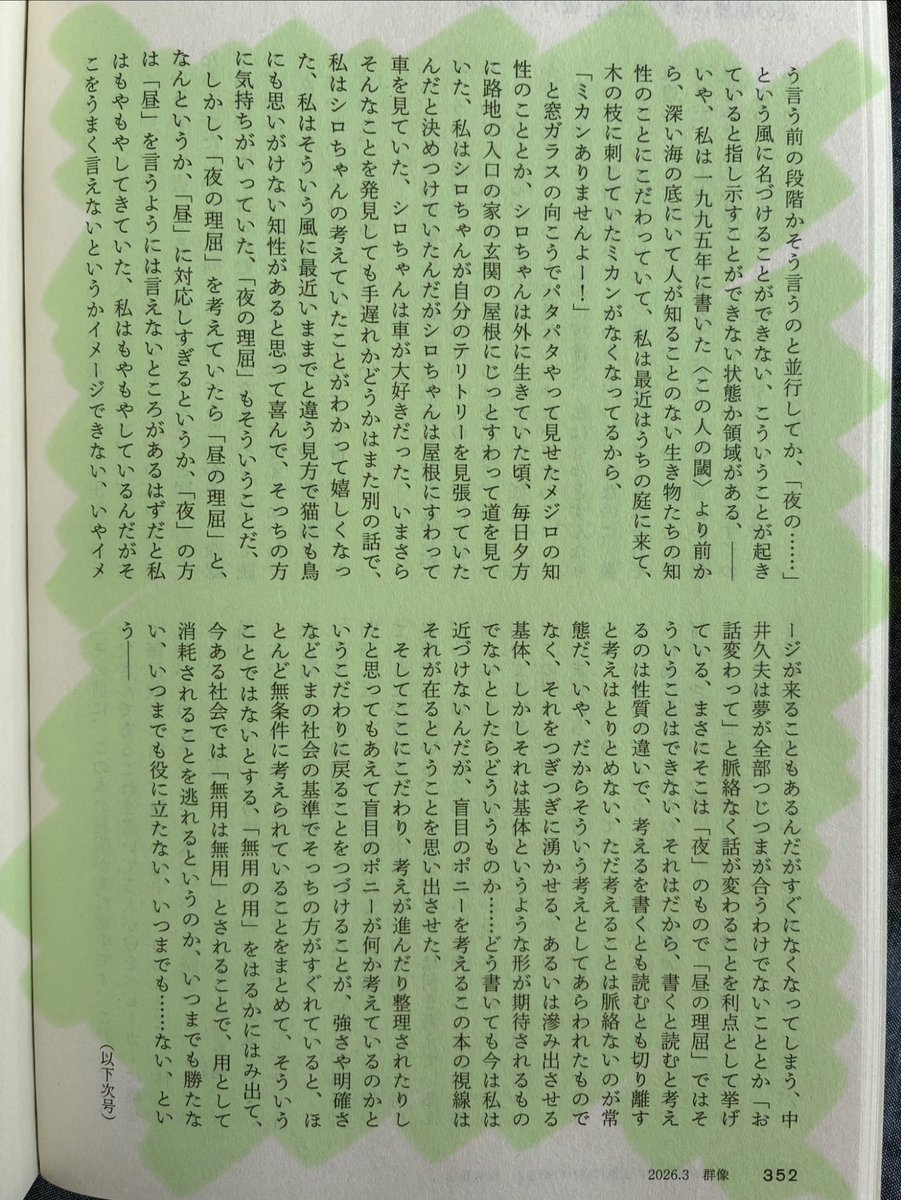 う言う前の段階かそう言うのと並行してか、「夜の……」
という風に名づけることができない、こういうことが起き
ていると指し示すことができない状態か領域がある、――
いや、私は一九九五年に書いた〈この人の閾〉より前か
ら、深い海の底にいて人が知ることのない生き物たちの知
性のことにこだわっていて、私は最近はうちの庭に来て、
木の枝に刺していたミカンがなくなってるから、
「ミカンありませんよー！」
と窓ガラスの向こうでパタパタやって見せたメジロの知
性のこととか、シロちゃんは外に生きていた頃、毎日夕方
に路地の入口の家の玄関の屋根にじっとすわって道を見て
いた、私はシロちゃんが自分のテリトリーを見張っていた
んだと決めつけていたんだがシロちゃんは屋根にすわって
車を見ていた、シロちゃんは車が大好きだった、いまさら
そんなことを発見しても手遅れかどうかはまた別の話で、
私はシロちゃんの考えていたことがわかって嬉しくなっ
た、私はそういう風に最近いままでと違う見方で猫にも鳥
にも思いがけない知性があると思って喜んで、そっちの方
に気持ちがいっていた、「夜の理屈」もそういうことだ、
しかし、「夜の理屈」を考えていたら「昼の理屈」と、
なんというか、「昼」に対応しすぎるというか、「夜」の方
は「昼」を言うようには言えないところがあるはずだと私
はもやもやしてきていた、私はもやもやしているんだがそ
こをうまく言えないというかイメージできない、いやイメ
ージが来ることもあるんだがすぐになくなってしまう、中
井久夫は夢が全部つじつまが合うわけでないこととか「お
話変わって」と脈絡なく話が変わることを利点として挙げ
ている、まさにそこは「夜」のもので「昼の理屈」ではそ
ういうことはできない、それはだから、書くと読むと考え
るのは性質の違いで、考えるを書くとも読むとも切り離す
と考えはとりとめない、ただ考えることは脈絡ないのが常
態だ、いや、だからそういう考えとしてあらわれたもので
なく、それをつぎつぎに湧かせる、あるいは滲み出させる
基体、しかしそれは基体というような形が期待されるもの
でないとしたらどういうものか……どう書いても今は私は
近づけないんだが、盲目のポニーを考えるこの本の視線は
それが在るということを思い出させた、
そしてここにこだわり、考えが進んだり整理されたりし
たと思ってもあえて盲目のポニーが何か考えているのかと
いうこだわりに戻ることをつづけることが、強さや明確さ
などいまの社会の基準でそっちの方がすぐれていると、ほ
とんど無条件に考えられていることをまとめて、そういう
ことではないとする、「無用の用」をはるかにはみ出て、
今ある社会では「無用は無用」とされることで、用として
消耗されることを逃れるというのか、いつまでも勝たな
い、いつまでも役に立たない、いつまでも……ない、とい
う――
（以下次号）
2026.3 群像 352